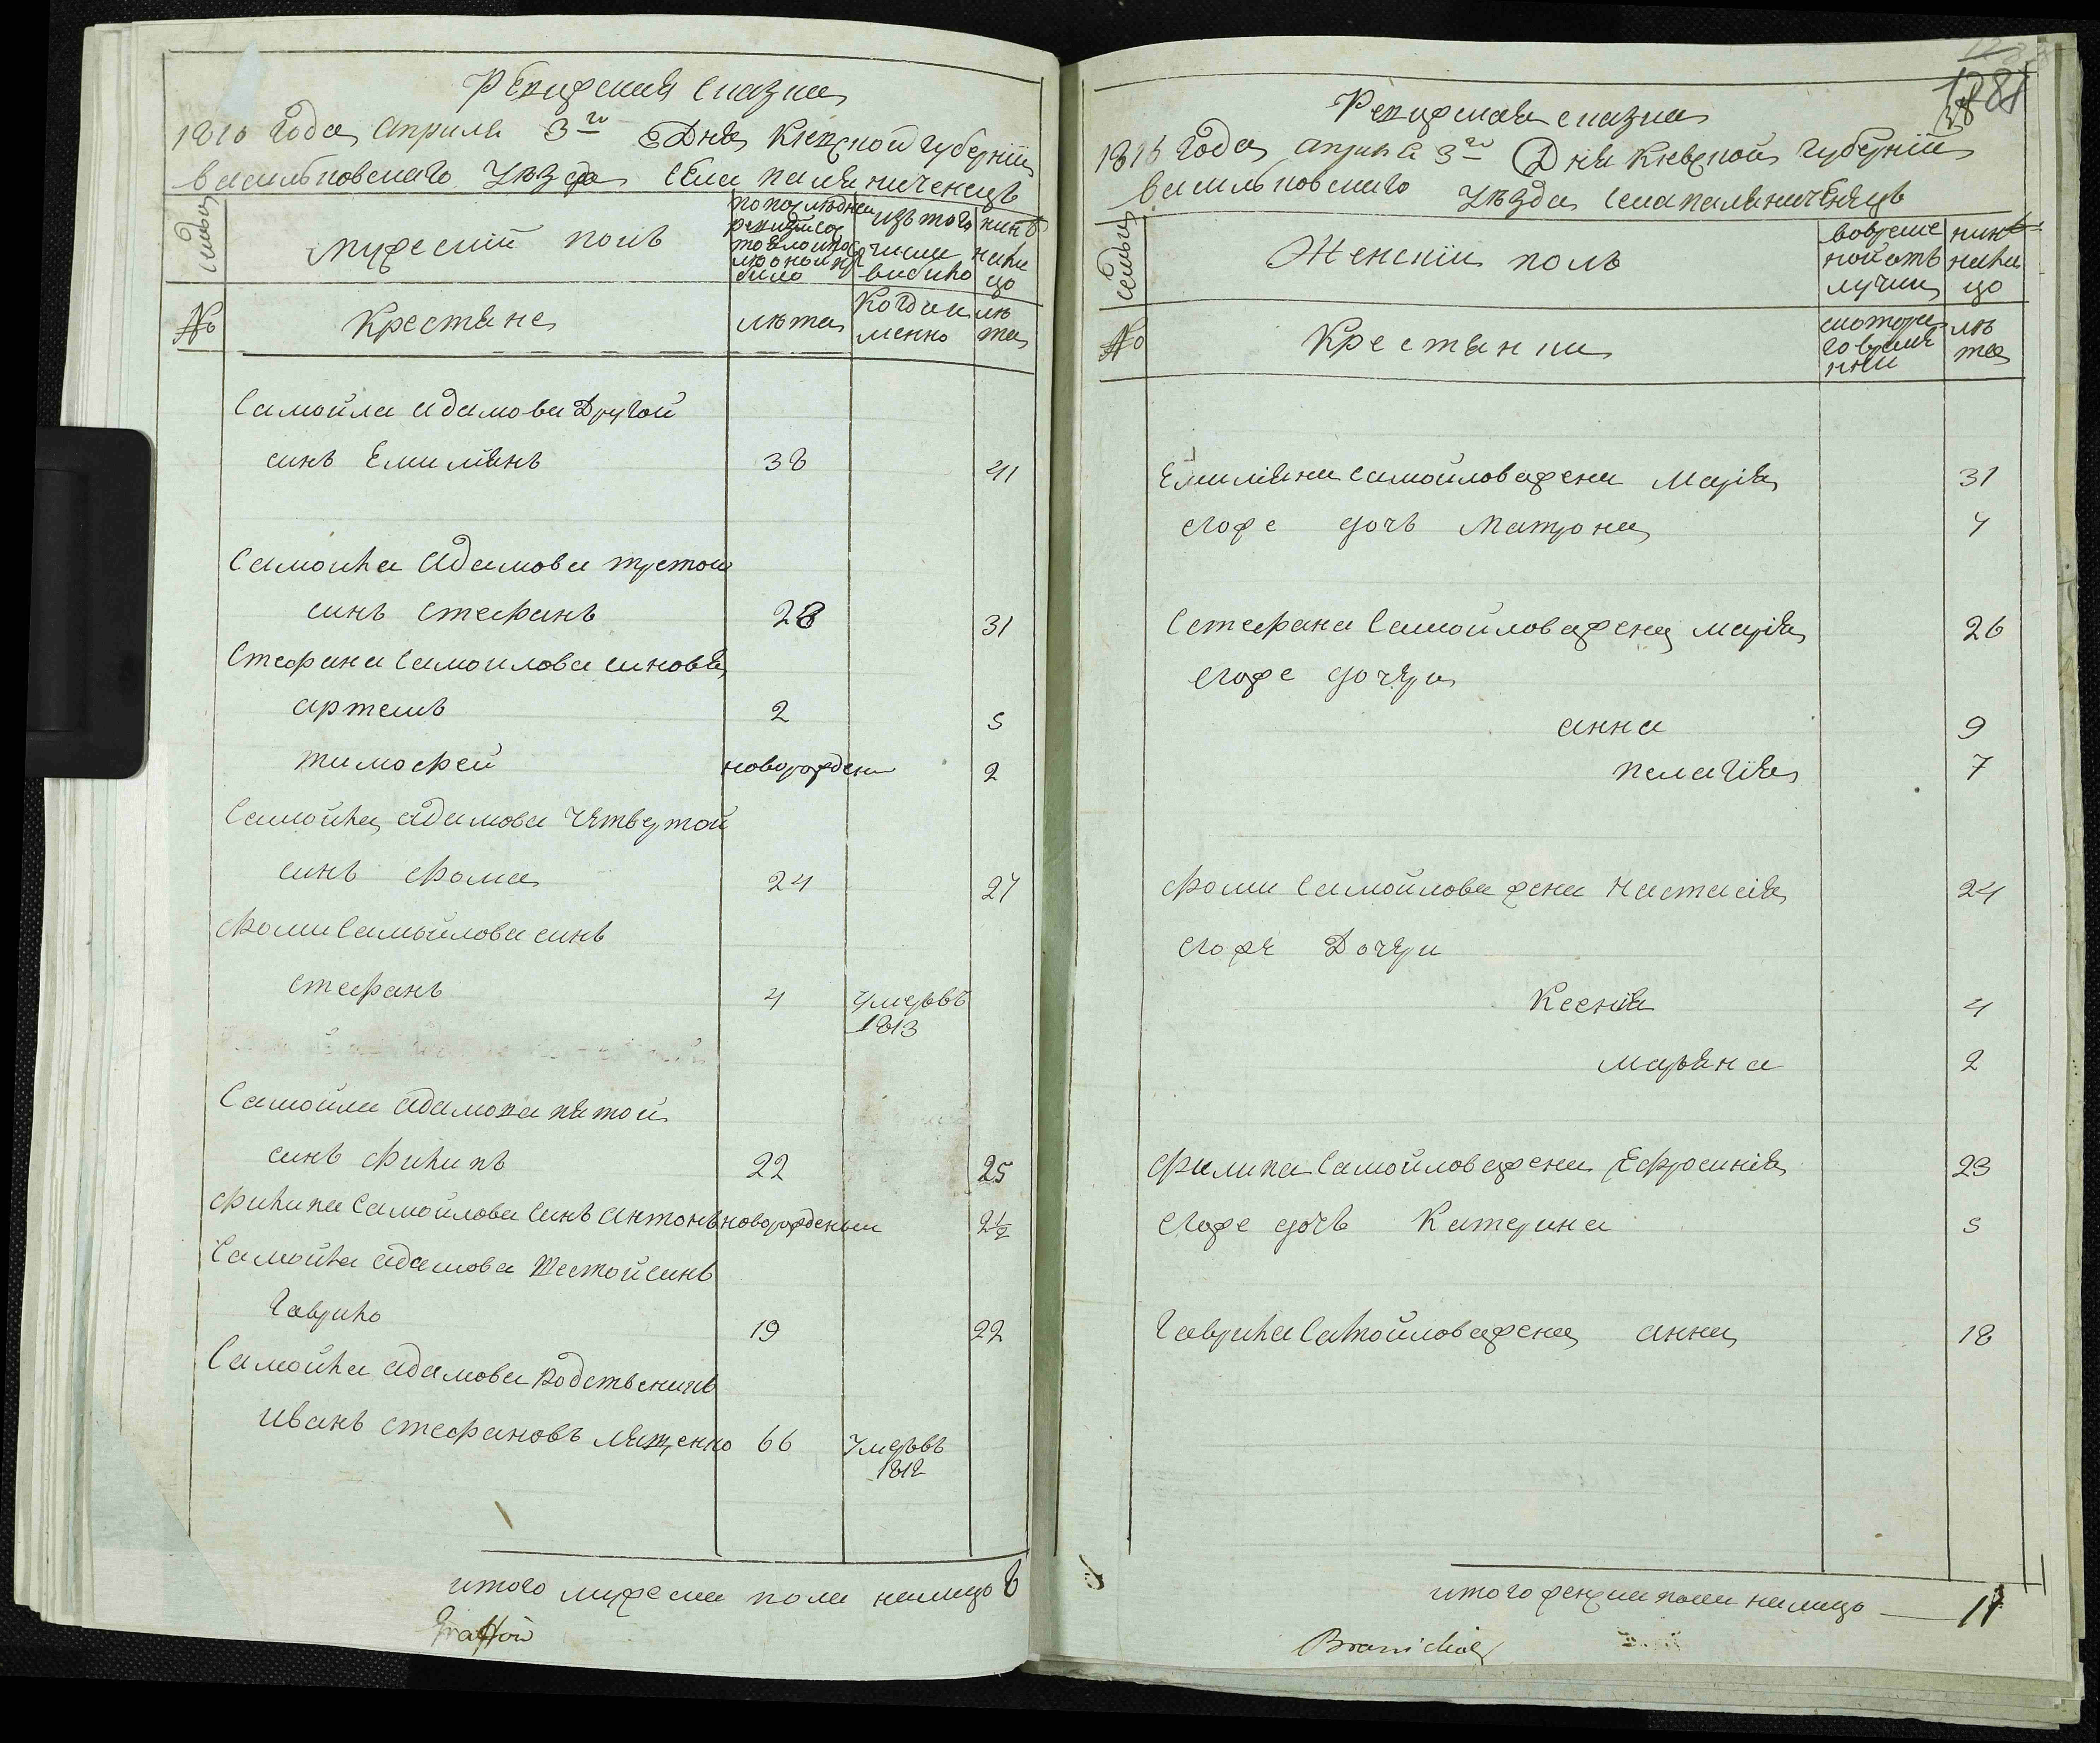 Ревизская сказка
1816 года априля 3го Дня Киевской губернии
васильковского уезда села паляниченецъ
семьи
мужеский полъ
по последней ревизии состояло и после оной прибило
изъ того числа вибило
нине налицо
№
Крестяне
лета
Когда именно
лета
Самойла адамова Другой
синъ Емилиянъ 38 41
Самойла адамова третой
синъ стефанъ 28 31
Стефана самойлова синовя
артемъ 2 5
тимофей новорожден 2
Самойла адамова четвертой
синъ фома 24 27
фоми самойлова синъ
стефанъ 4 умервъ
1813
Самойла адамова пятой
синъ филипъ 22 25
филипа самойлова синъ антонъ новорожденый 2½
Самойла адамова шестой синъ
гаврило 19 22
Самойла адамова родственикъ
иванъ стефановъ лященко 66 умервъ
1812
итого мужеска пола налицо 8
Graffow
Ревизская сказка
1816 года априля 3го Дня Киевской губернии
васильковского уезда села паляниченецъ
семьи
Женский полъ
во временной отлучки
нине налицо
№
Крестянки
с которого времени
лета
Емилияна самойлова жена Мария 31
егоже дочъ Матрона 4
Стефана Самойлова жена мария 26
егоже дочери
анна 9
пелагия 7
фоми Самойлова жена Настасия 24
егоже Дочери
Ксения 4
маряна 2
филипа Самойлова жена Ефросиния 23
егоже дочъ Катерина 5
гаврила Самойлова жена анна 18
итого женска пола налицо — 11